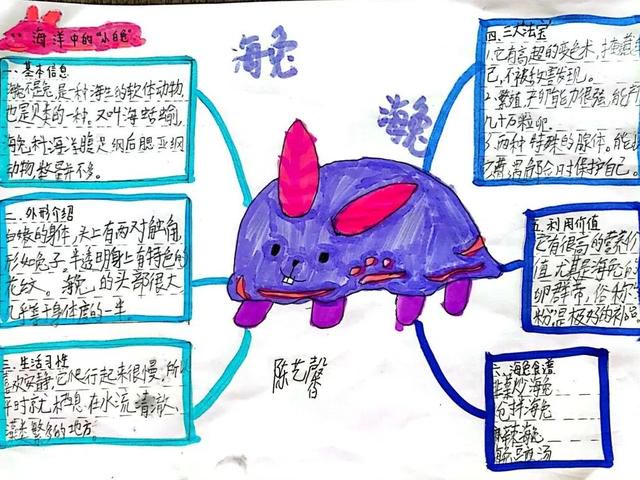 海洋中的"小白兔"
海兔
海兔
一、基本信息
海兔不是兔,是一种海生的软体动物,
也是贝类的一种,又叫海蛞蝓,
海兔科海洋腹足纲后腮亚纲
动物
二、外形介绍
的身体,头上有两对触角,
形如兔子。半透明身上有特色的
花纹。海兔的头部很大
几乎等于身体的一半。
三、生活习性
喜欢安静,它爬行起来很慢,所以
平时就栖息在水流清澈、
藻类繁多的地方。
四、三大法宝
1.它有高超的变色术,
己,不被敌害发现。
2.繁殖产卵能力很强,能产
几十万粒卵。
3.两种特殊的腺体。能
保护自己。
五、利用价值
它有很高的营养价
值,尤其是海兔的
卵群带,俗称"
粉"是极好的补品
六、海兔食谱
韭菜炒海兔
包拌海兔
麻辣海兔
豆汤
陈艺馨